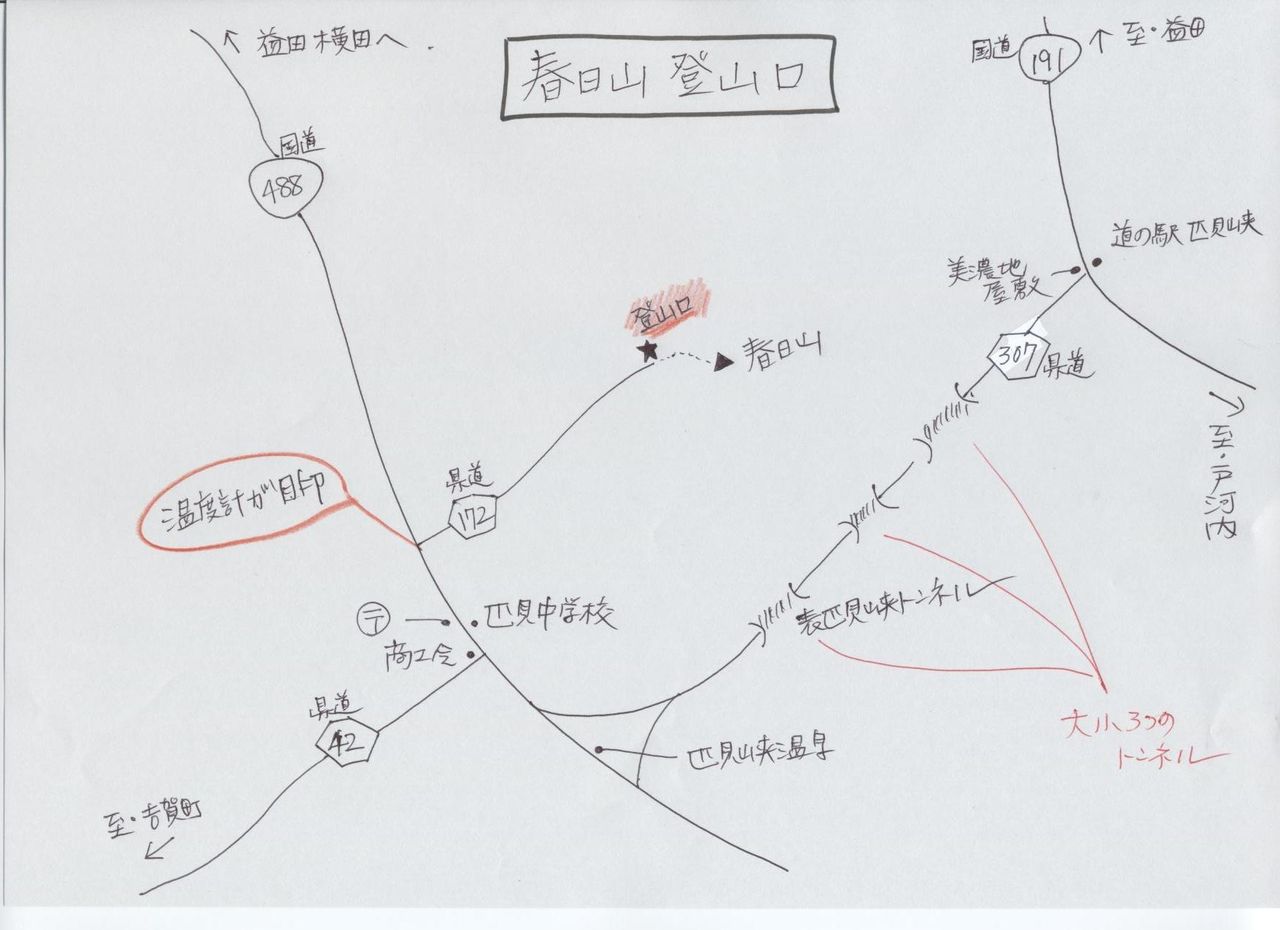 春日山 登山口
益田 横田へ
国道
488
国道
191
至・益田
道の駅 匹見峡
美濃地
屋敷
307
県道
至・戸河内
登山口
春日山
温度計が目印
県道
172
〒
匹見中学校
商工会
県道
42
至・吉賀町
表匹見峡トンネル
大小3つの
トンネル
匹見峡温泉